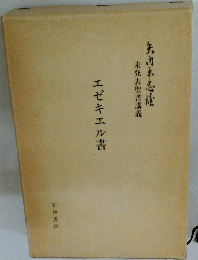 矢内原忠雄
未発表聖書講義
エゼキエル書